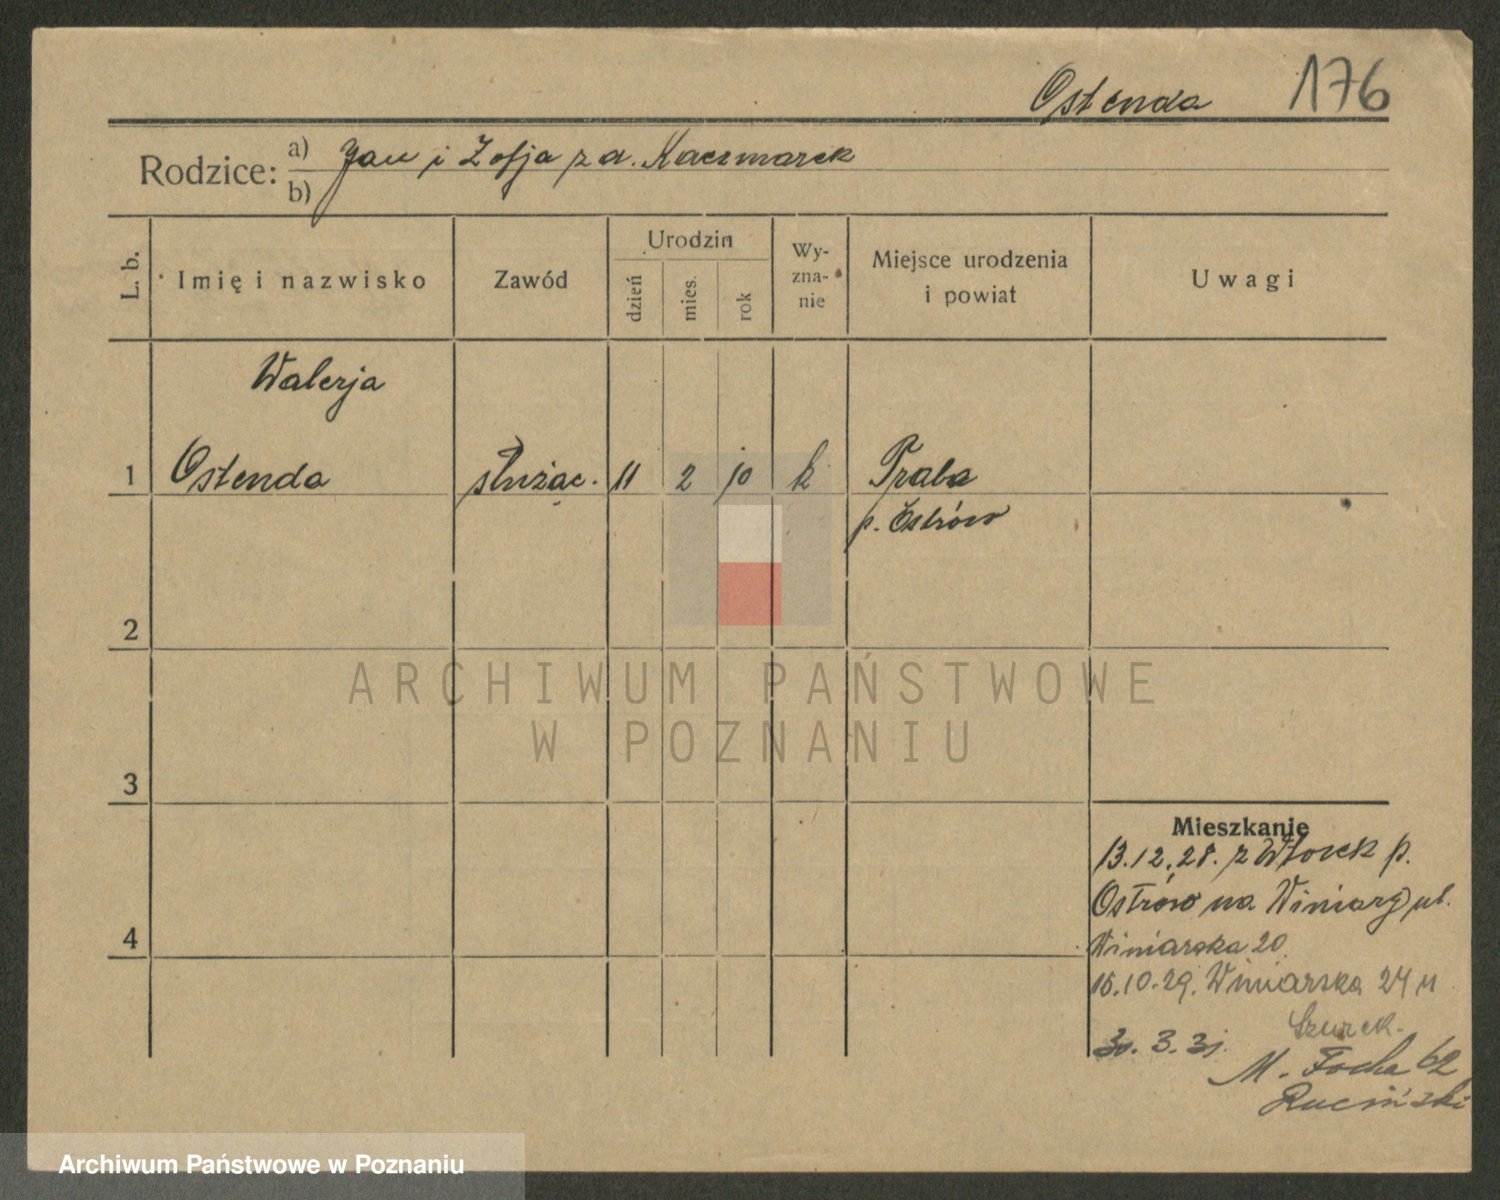 Ostenda 176
Rodzice: a) Jan i Zofja z d. Kaczmarek
b)
L. b. Imię i nazwisko Zawód Urodzin dzień mies. rok Wyzna-nie Miejsce urodzenia i powiat Uwagi
Walerja
1 Ostenda służąc. 11 2 10 k Praba
p. Ostrów
2
3
4
Mieszkanie
13.12.28. z Wtorek p.
Ostrów na Winiary ul.
Winiarska 20
16.10.29. Winiarska 24 u
Szurek.
30. 3. 31.
M. Focha 62
Ruciński
ARCHIWUM PAŃSTWOWE
W POZNANIU
Archiwum Państwowe w Poznaniu